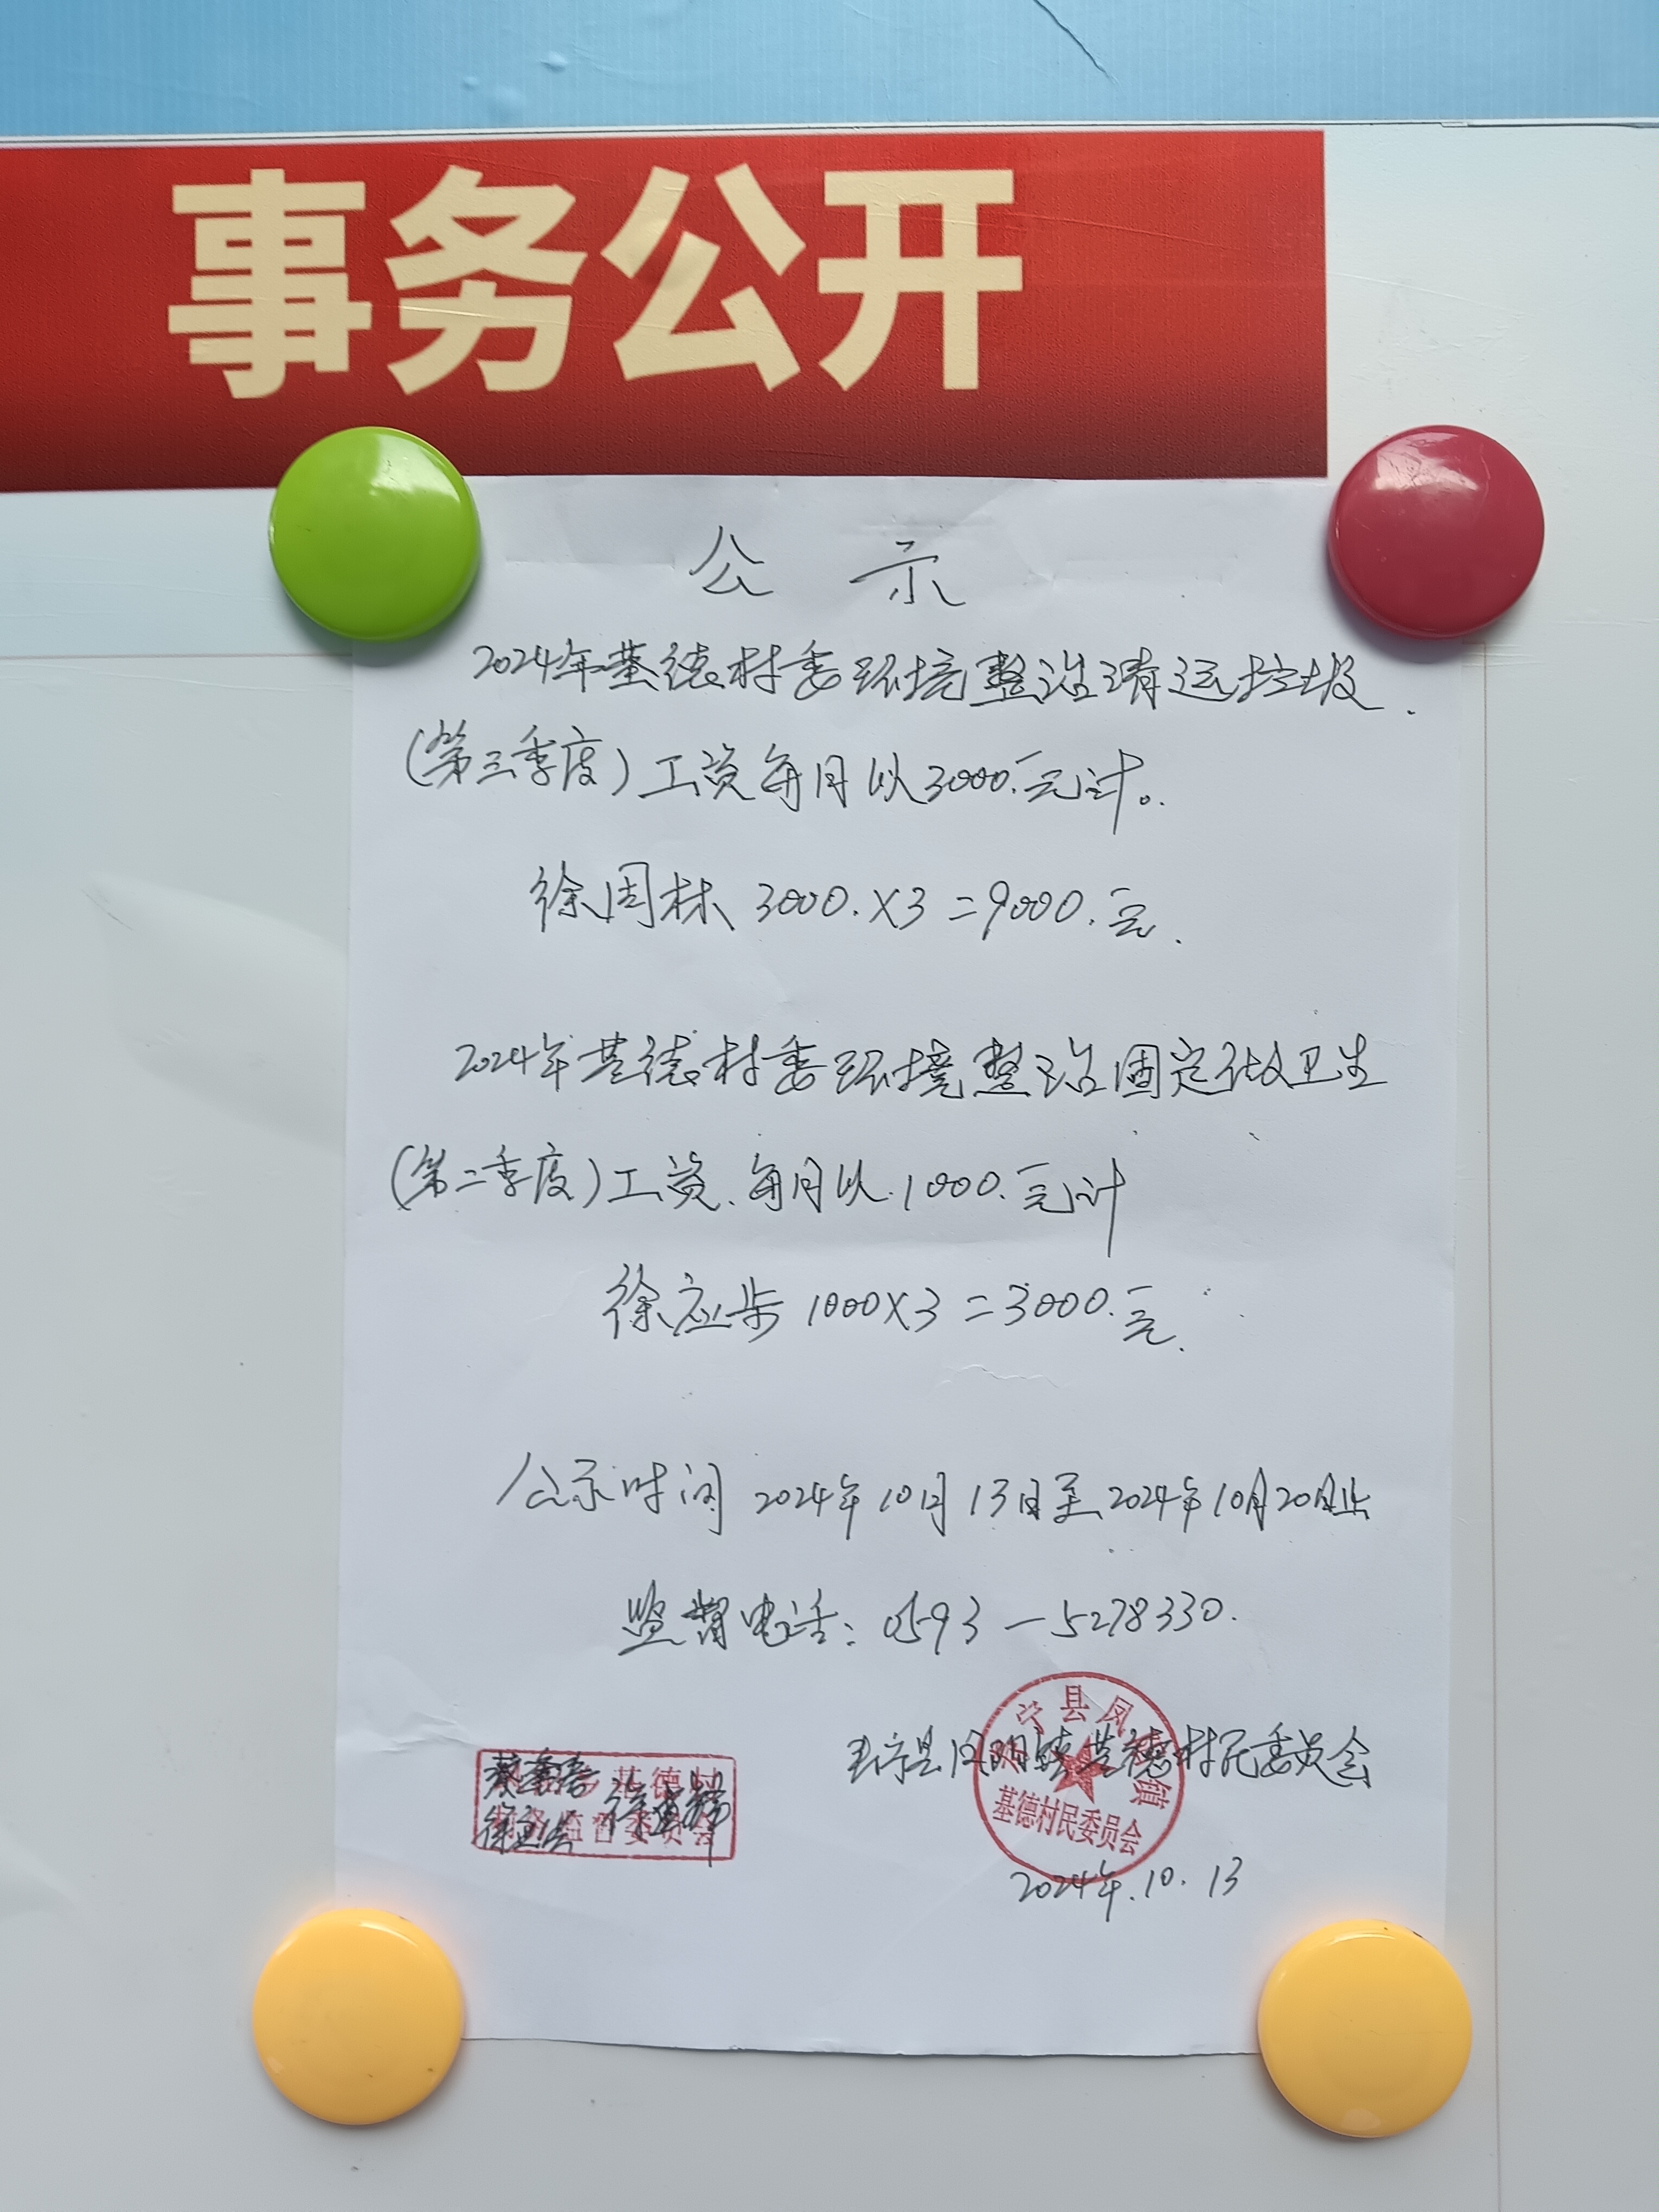 事务公开
公示
2024年基德村委环境整治清运垃圾.
(第三季度)工资每月以3000.元计。
徐周林 3000.×3=9000.元.
2024年基德村委环境整治固定做卫生
(第二季度)工资.每月以.1000.元计
徐应步 1000×3=3000.元.
公示时间 2024年10月13日至2024年10月20日止
监督电话:0593—5278330.
寿宁县凤阳镇基德村民委员会
宁县凤 镇
基德村民委员会
2024年.10.13
基德村
监督委员会